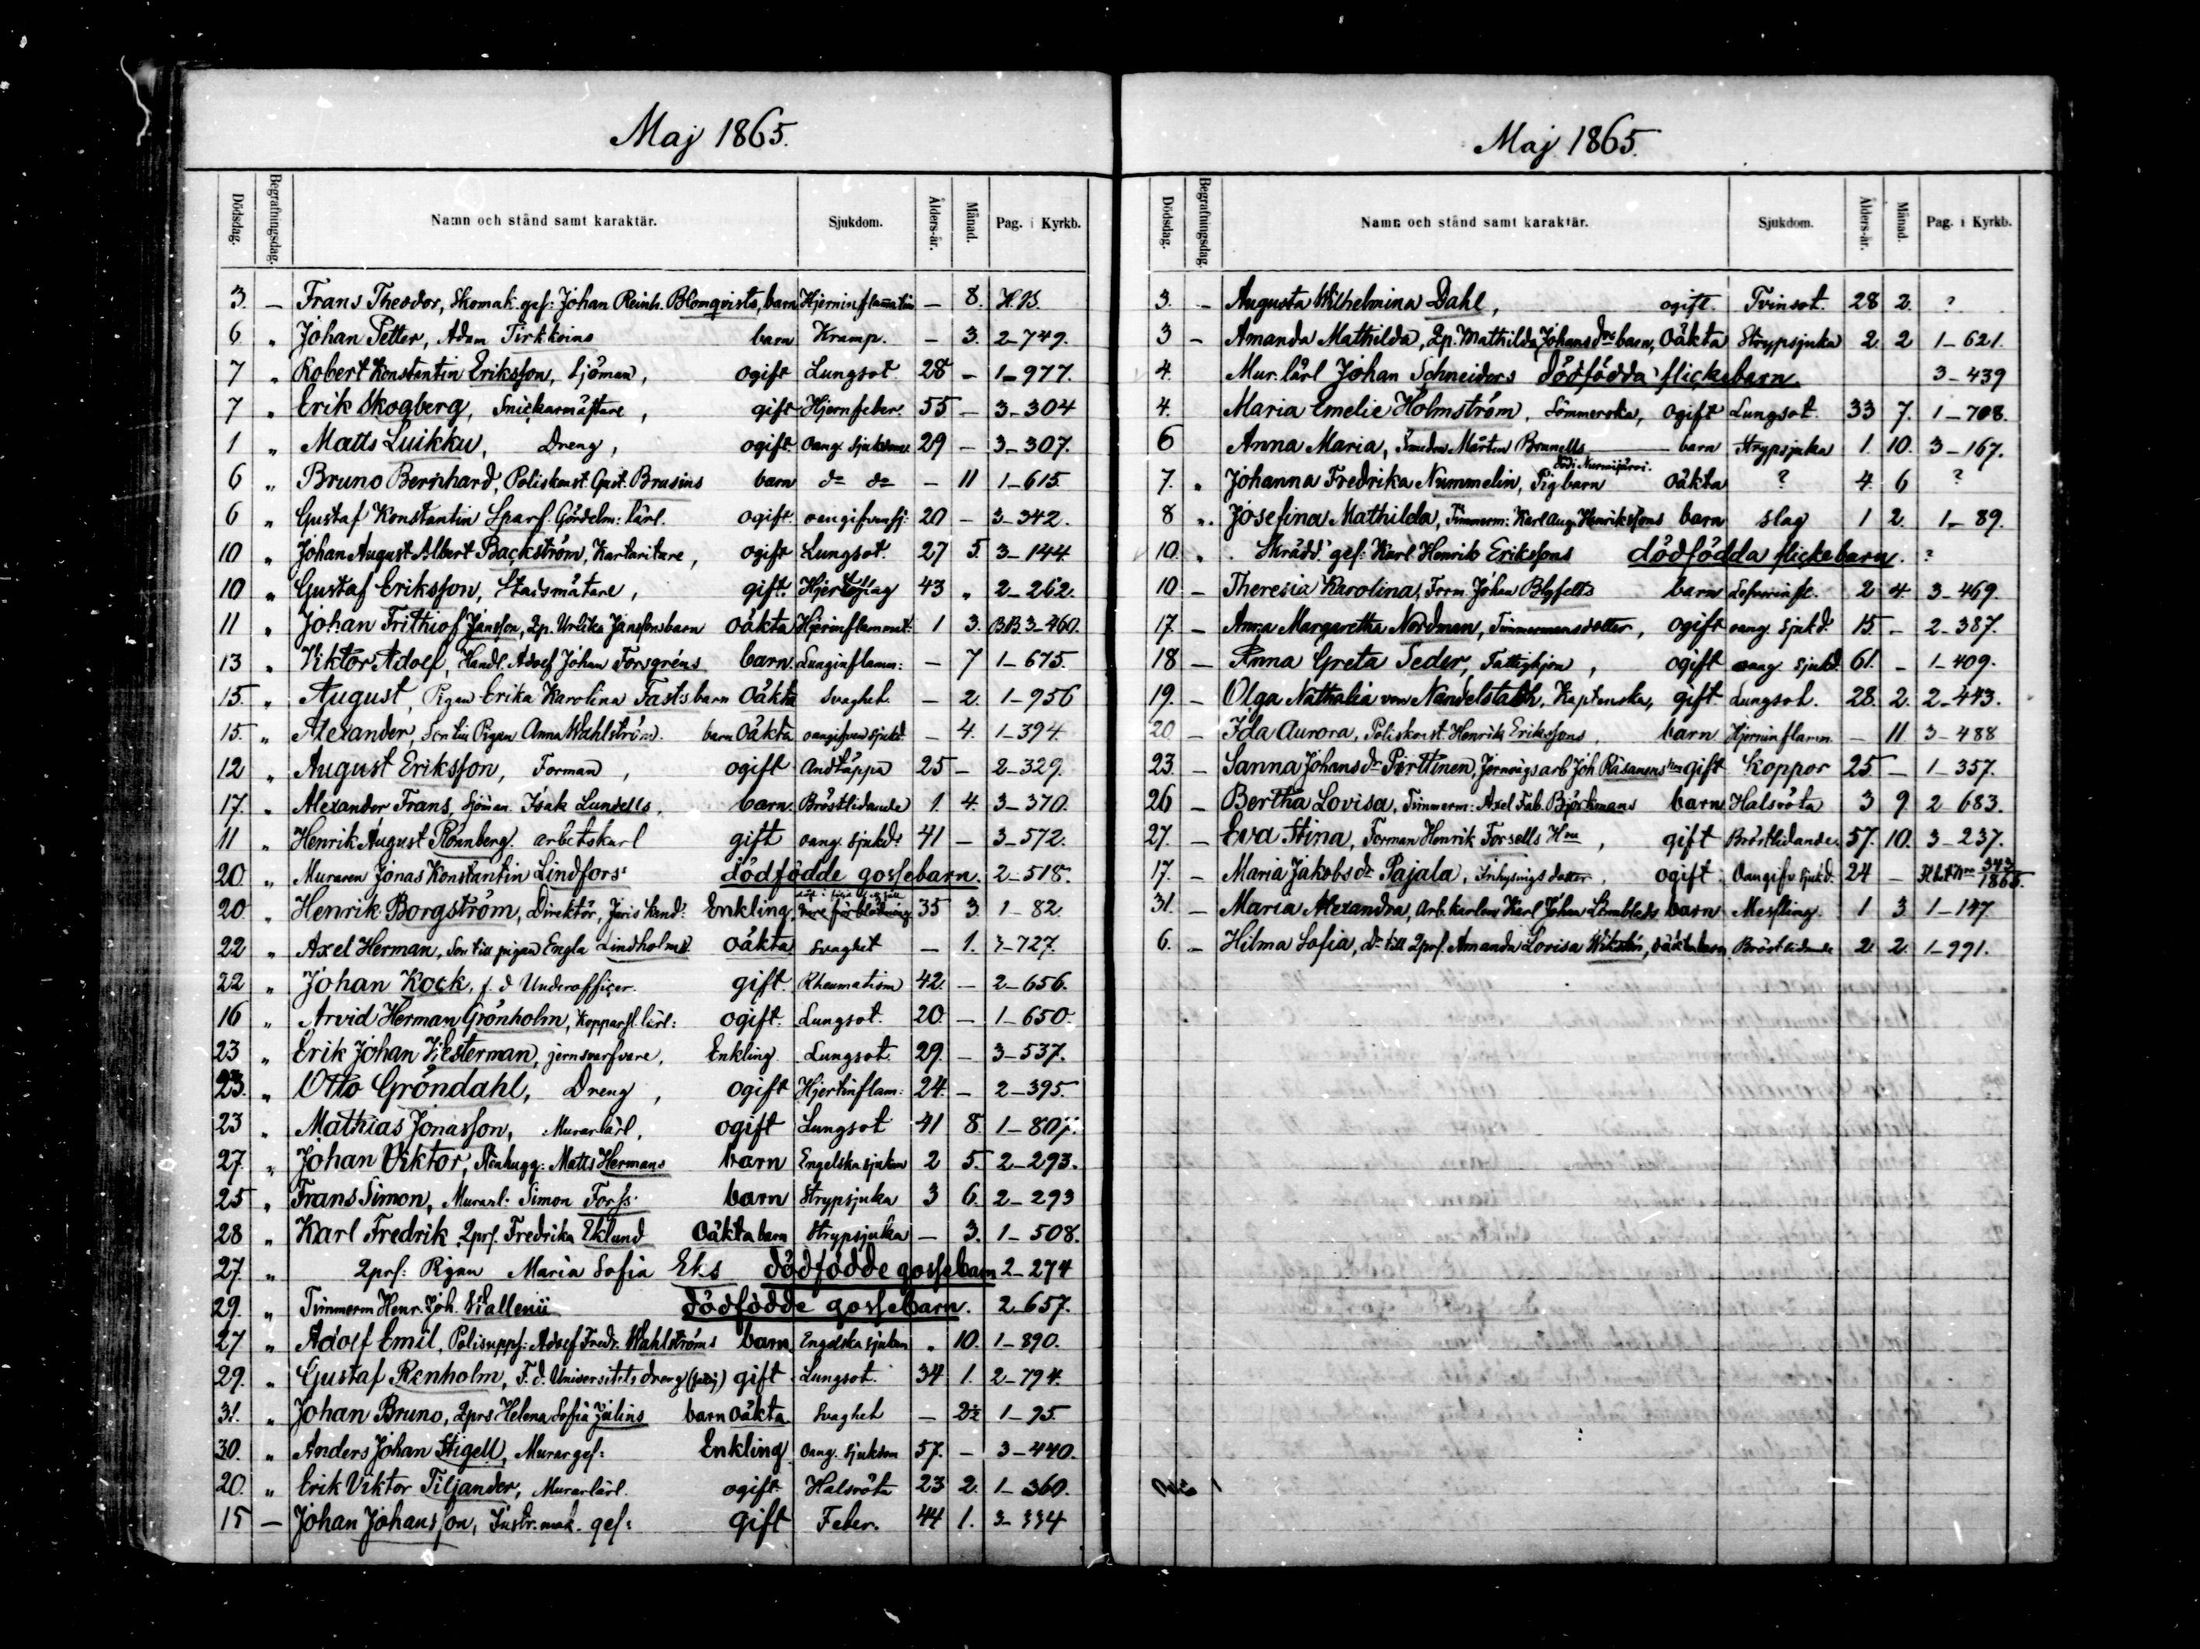 Maj 1865.
Dödsdag. Begrafningsdag. Namn och stånd samt karaktär. Sjukdom. Ålders-år. Månad. Pag. i Kyrkb.
3. — Frans Theodor, Skomak. ges: Johan Reinh. Blomqvists, barn Hjerninflamation — 8. H.B.
6 „ Johan Petter, Adam Tirkkoins barn Kramp. — 3. 2-749.
7 „ Robert Konstantin Eriksson, Sjöman, ogift Lungsot. 28 — 1-977.
7 „ Erik Skogberg, Snickarmästare, gift Hjernfeber. 55 — 3-304
1 „ Matts Luikku, Dreng, ogift. Oang. sjukdom. 29 — 3-307.
6 „ Bruno Bernhard, Poliskonst. Gust. Brusins barn do do — 11 1-615.
6 „ Gustaf Konstantin Sparf. Gördelm: lärl. ogift. oangifven sj: 20 — 3-342.
10 „ Johan August Albert Backström, Kartaritare, ogift Lungsot. 27 5. 3-144
10 „ Gustaf Eriksson, Stadsmätare, gift. Hjertslag 43 „ 2-262.
11 „ Johan Frithiof Jansson, 2p. Urlika Janssons barn Oäkta Hjerinflammat: 1 3. BB.3-460.
13 „ Viktor Adolf, Handl. Adolf Johan Forsgréns barn. Lunginflamm: — 7 1-675.
15. „ August, Pigan Erika Karolina Fasts barn Oäkta Svaghet — 2. 1-956
15. „ Alexander, Son till Pigan Anna Wahlström. barn Oäkta oangifven sjukd. — 4. 1-394
12 „ August Eriksson, Forman, ogift Andtäppa 25 — 2-329.
17. „ Alexander Frans, Sjöman Isak Lundells, barn. Bröstlidande 1. 4. 3-370.
11 „ Henrik August Rönnberg. arbetskarl gift oang. sjukd: 41 — 3-572.
20. „ Muraren Jonas Konstantin Lindfors' dödfödde gossebarn. 2-518.
20. „ Henrik Borgström, Direktör, Juris kand: Enkling. förblödning 35 3. 1-82.
22 „ Axel Herman, Son till pigan Engla Lindholm. Oäkta Svaghet — 1. 3-727.
22 „ Johan Kock, f.d Underofficer. gift. Rheumatism 42. — 2-656.
16 „ Arvid Herman Grönholm, Kopparsl. lärl: ogift. Lungsot. 20 — 1-650.
23 „ Erik Johan Westerman, jernsvarfvare, Enkling Lungsot 29. — 3-537.
23. „ Otto Gröndahl, Dreng, ogift Hjertinflam: 24. — 2-395.
23 „ Mathias Jonasson, Murarlärl, ogift Lungsot 41 8. 1-807.
27. „ Johan Viktor, Stenhugg: Matts Hermans barn Engelska sjukan 2 5. 2-293.
25 „ Frans Simon, Murarl: Simon Forss barn Strypsjuka 3 6. 2-293
28 „ Karl Fredrik, 2prs. Fredrika Eklund Oäkta barn Strypsjuka — 3. 1-508.
27. „ 2prs: Pigan Maria Sofia Eks dödfödde gossebarn 2-274
29. „ Timmerm Henr. Joh. Wallenii dödfödde gossebarn. 2-657.
27 „ Adolf Emil, Polisuppf: Adolf Fredr. Wahlströms barn Engelska sjukan „ 10. 1-890.
29. „ Gustaf Renholm, F.d. Universitets dreng gift Lungsot. 34 1. 2-794.
31. „ Johan Bruno, 2prs Helena Sofia Julins barn oäkta Svaghet — 2½ 1-95.
30. „ Anders Johan Stigell, Murarges: Enkling Oang. sjukdom 57. — 3-440.
20. „ Erik Viktor Tiljander, Murarlärl. ogift Halsröta 23 2. 1-360.
15 — Johan Johansson, Instr. mak. ges: gift Feber. 44 1. 3-334
Maj 1865.
Dödsdag. Begrafningsdag. Namn och stånd samt karaktär. Sjukdom. Ålders-år. Månad. Pag. i Kyrkb.
3. — Augusta Wilhelmina Dahl, ogift. Tvinsot. 28 2. ?
3 — Amanda Mathilda, 2p. Mathilda Johansdrs barn, Oäkta Strypsjuka 2 2 1-621.
4. Mur. lärl Johan Schneiders dödfödda flickebarn. 3-439
4. Maria Emelie Holmström, Sömmerska, ogift Lungsot. 33 7. 1-708.
6 Anna Maria, Smeden Mårten Brunells barn Strypsjuka 1. 10. 3-167.
död i Nurmijärvi.
7. „ Johanna Fredrika Nummelin, Pigbarn oäkta ? 4. 6 ?
8 „ Josefina Mathilda, Timmerm: Karl Aug. Henrikssons barn slag 1 2. 1-89.
10. „ Skrädd. ges: Karl Henrik Erikssons dödfödda flickebarn. ?
10 — Theresia Karolina, Form. Johan Blyfelts barn 2 4. 3-469.
17. — Anna Margaretha Nordman, Timmermansdotter, ogift oang. sjukd: 15 — 2-387.
18 — Anna Greta Teder, Fattighjon, ogift oang. sjukd. 61. — 1-409.
19. — Olga Nathalia von Nandelstadh, Kaptenska, gift Lungsot. 28. 2. 2-443.
20 — Ida Aurora, Poliskonst. Henrik Erikssons, barn Hjerninflamm — 11 3-488
23. — Sanna Johansdr Pirttinen, Jernvägsarb Joh Räsanens hu gift Koppor 25 — 1-357.
26 — Bertha Lovisa, Timmerm: Axel Fab. Björkmans barn Halsröta 3 9 2 683.
27. — Eva Stina, Forman Henrik Forsells Hru, gift Bröstlidande 57. 10. 3-237.
17. — Maria Jakobsdr Pajala, Inhysingsdotter, ogift Oangifv. sjukd. 24 — 343/1865.
31. — Maria Alexandra, Arb. karlen Karl Johan barn Messling. 1 3 1-147
6. — Hilma Sofia, dr till 2prs. Amanda Lovisa Wikström, oäkta barn Bröstlidande 2. 2. 1-991.